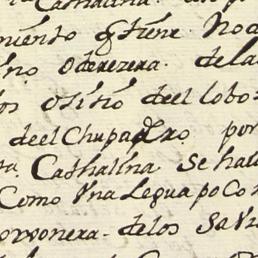 Cathalina
miento q tiene No a
no Oderezera dela
os Ositio deel lobo
deel Chupadero por
ta Cathalina se hal
Como Una Legua poco
orronera delos sa